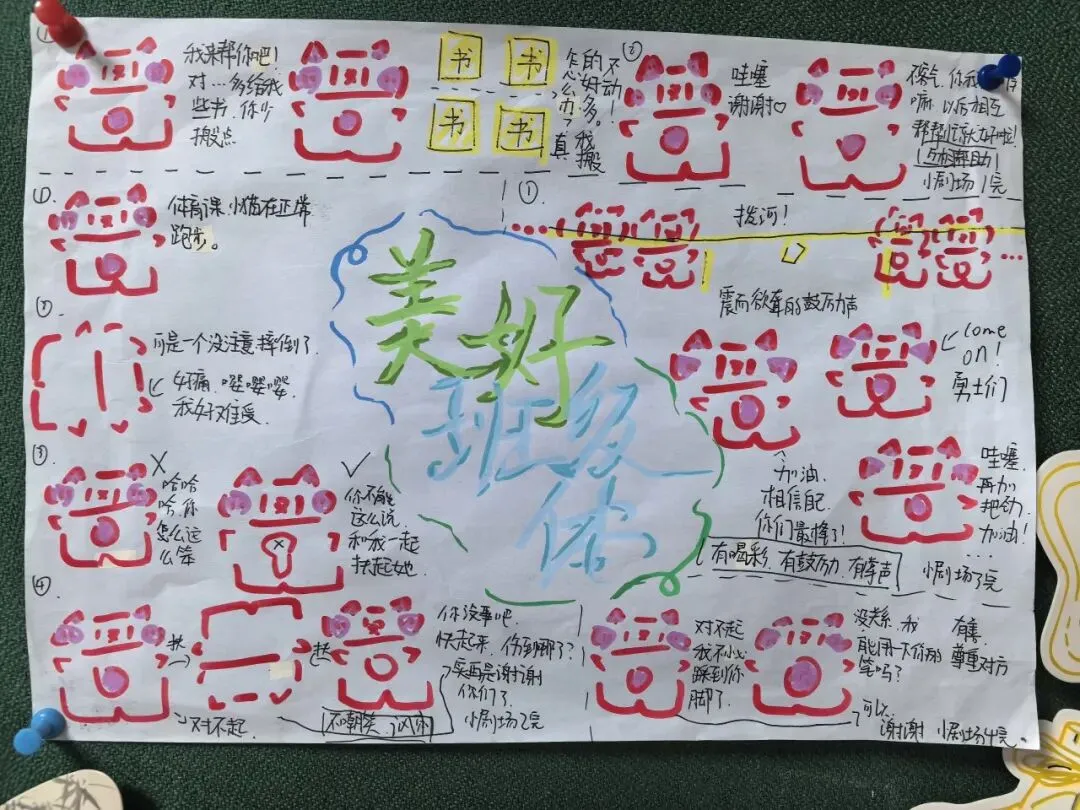 ①
我来帮你吧!
对…多给我
些书,你少
搬点
书 书
书 书
怎么办
的好多。
不动!
真
我搬
②
哇塞
谢谢♡
不客气,你我
嘛,以后相互
帮帮忙就太好啦!
互相帮助
小剧场1完
①.
体育课,小猫在正常
跑步。
②.
可是一个没注意,摔倒了.
好痛,嘤嘤嘤,
我好难受.
③.
×
哈哈
哈,你
怎么这
么笨
✓
你不能
这么说,
和我一起
扶起她.
④.
扶
扶
对不起.
你没事吧,
快起来,伤到哪了?
谢谢
你们了.
小剧场2完
不嘲笑
美好
班级
体
①.
拔河!
震而欲聋的鼓励声
come
on!
勇士们
加油,
相信自己,
你们最棒了!
哇塞,
再加
把劲,
加油!
…
有喝彩,有鼓励,有掌声
小剧场3完
对不起
我不小心
踩到你
脚了.
没关系,我
能用一下你的
笔吗?
可以,
谢谢
尊重对方
小剧场4完.